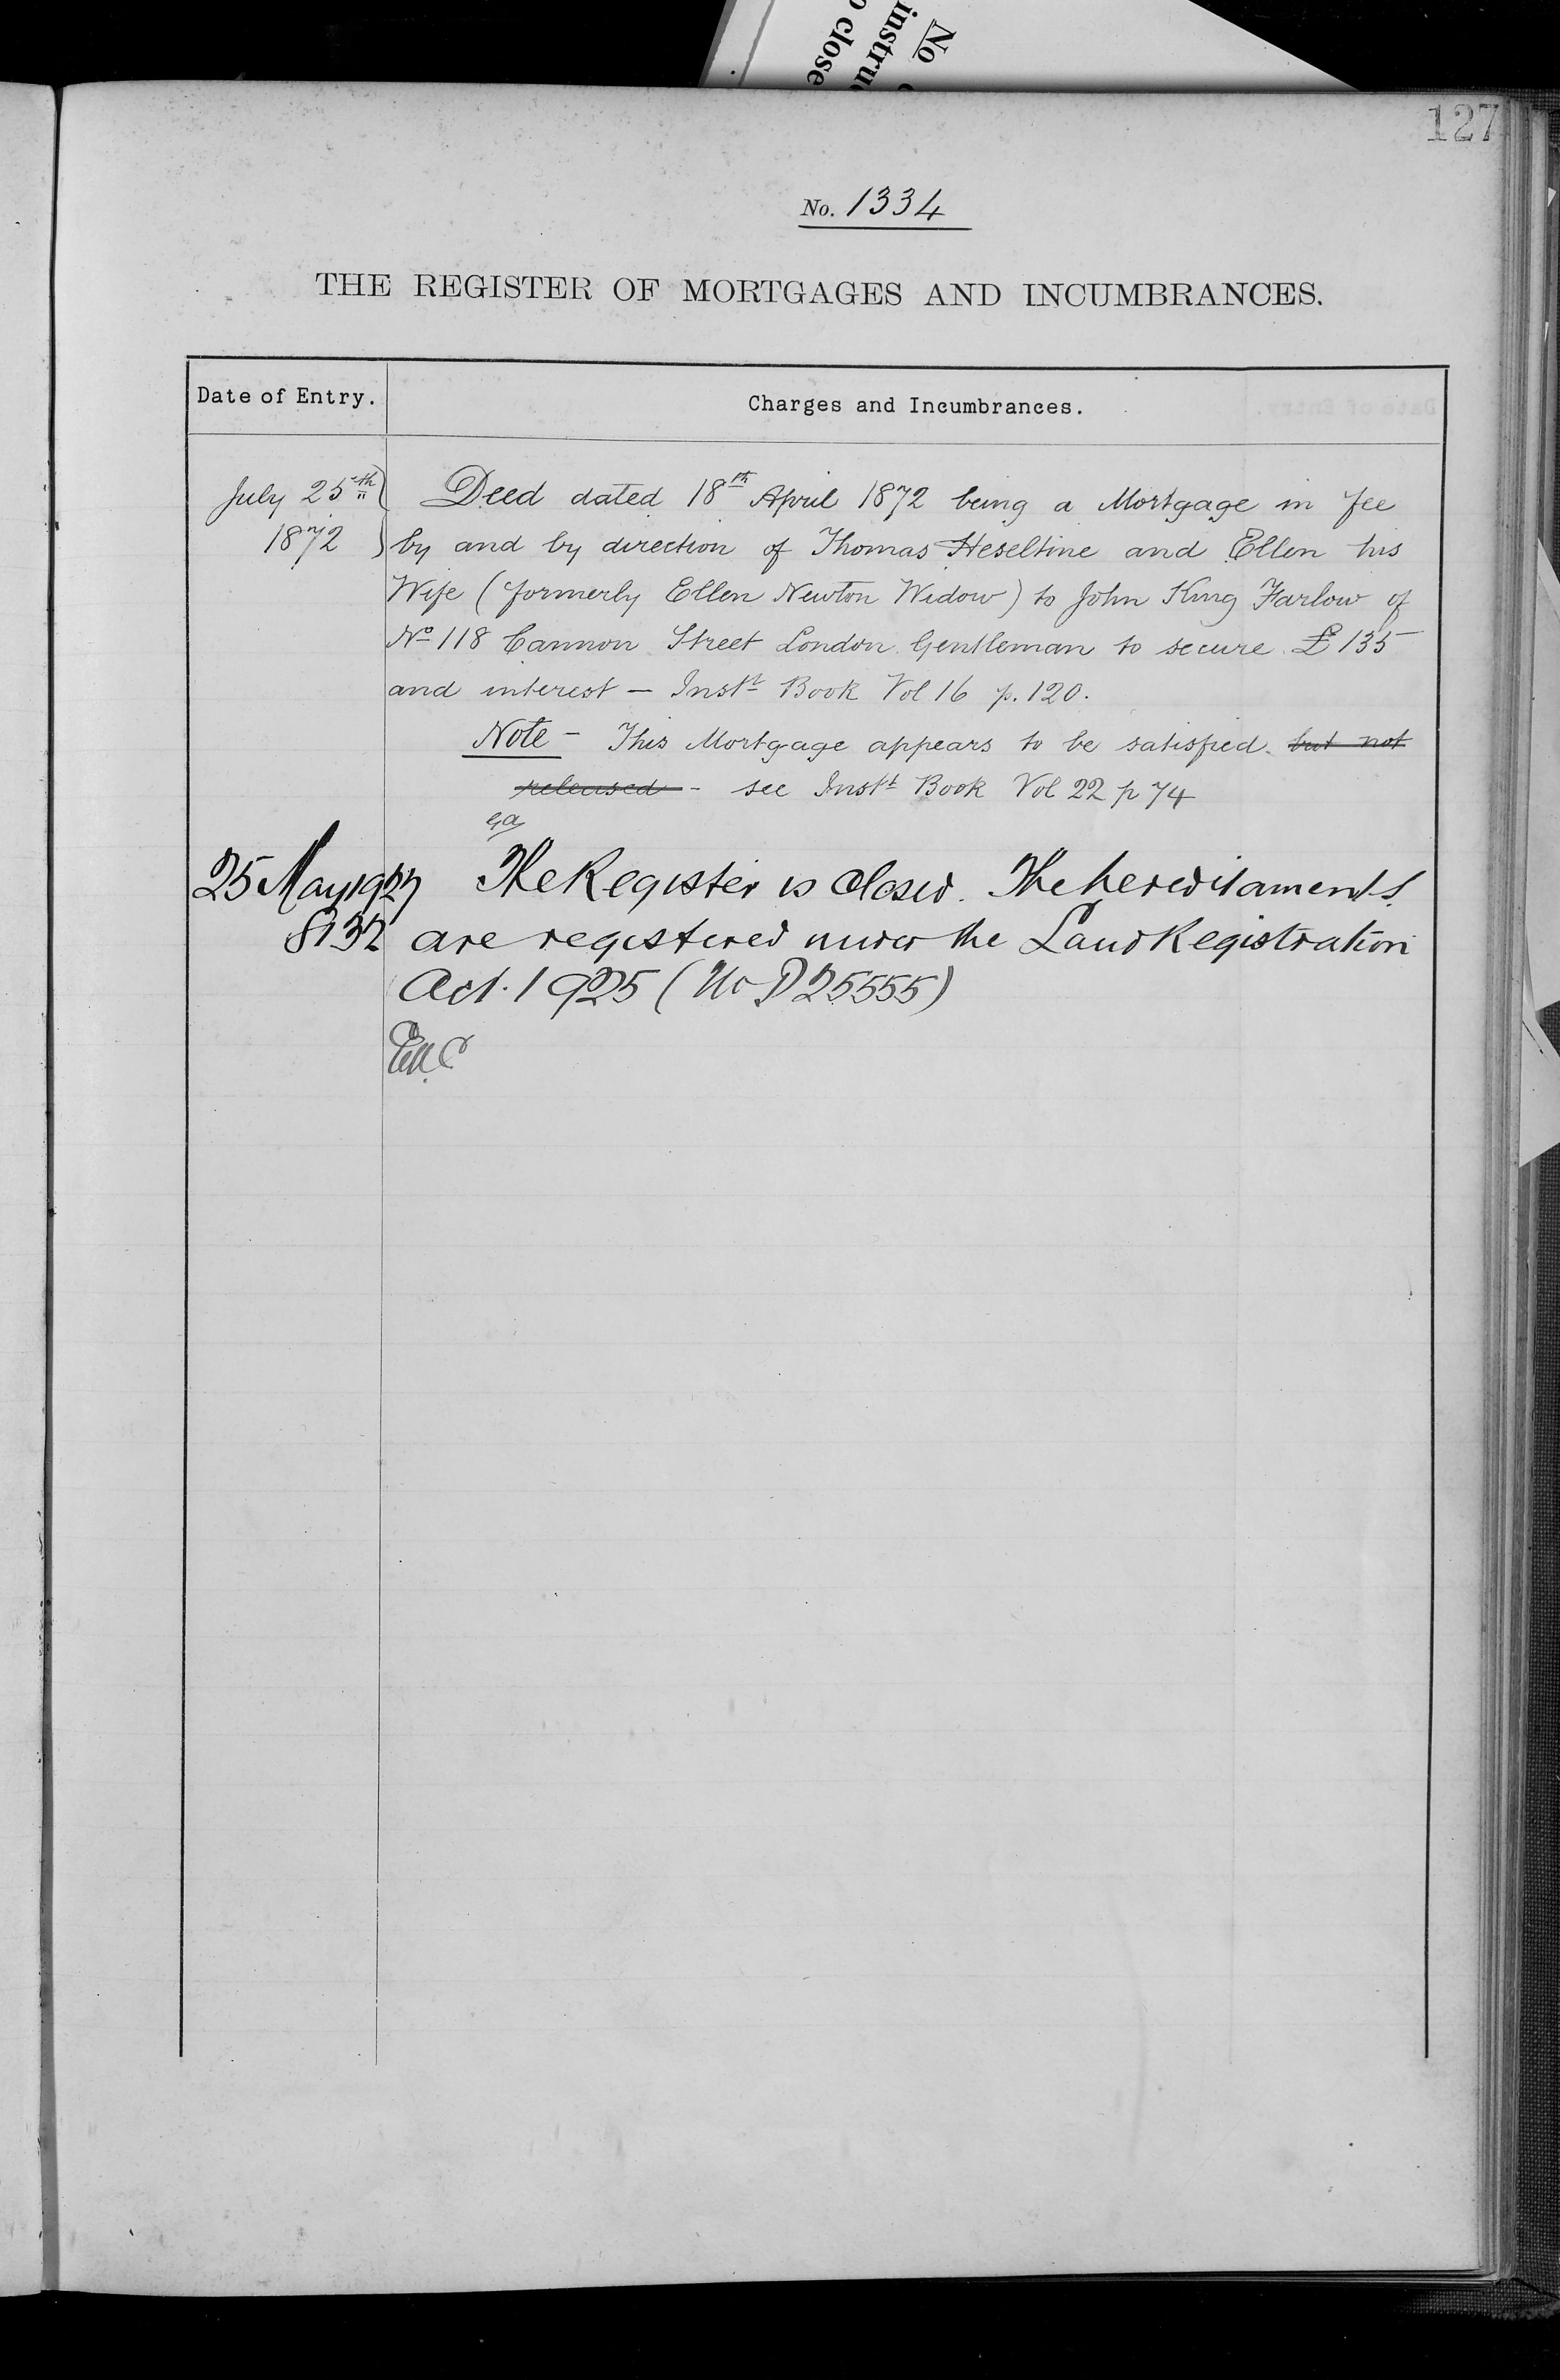 No
instru
o close
127
No. 1334
THE REGISTER OF MORTGAGES AND INCUMBRANCES.
Date of Entry.
Charges and Incumbrances.
July 25th
1872
Deed dated 18th April 1872 being a Mortgage in fee
by and by direction of Thomas Heseltine and Ellen his
Wife (formerly Ellen Newton Widow) to John King Farlow of
No 118 Cannon Street London Gentleman to secure £135
and interest – Instt Book Vol 16 p. 120.
Note – This Mortgage appears to be satisfied but not
released – see Instt Book Vol 22 p 74
25 May 1927 The Register is closed. The hereditaments
8132 are registered under the Land Registration
Act. 1925 (No P25555)